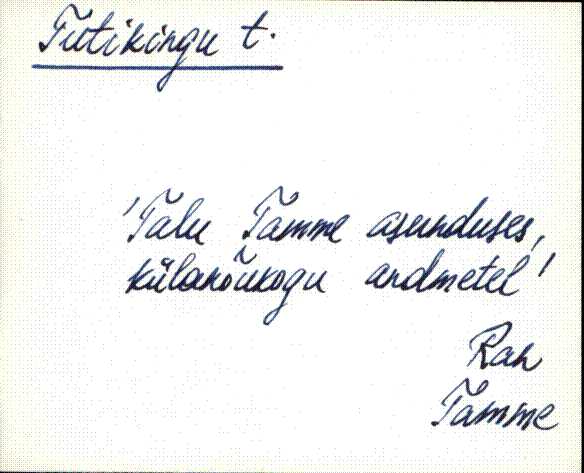 Tutikingu t.
'Talu Tamme asunduses,
külanõukogu andmetel'
Ran
Tamme